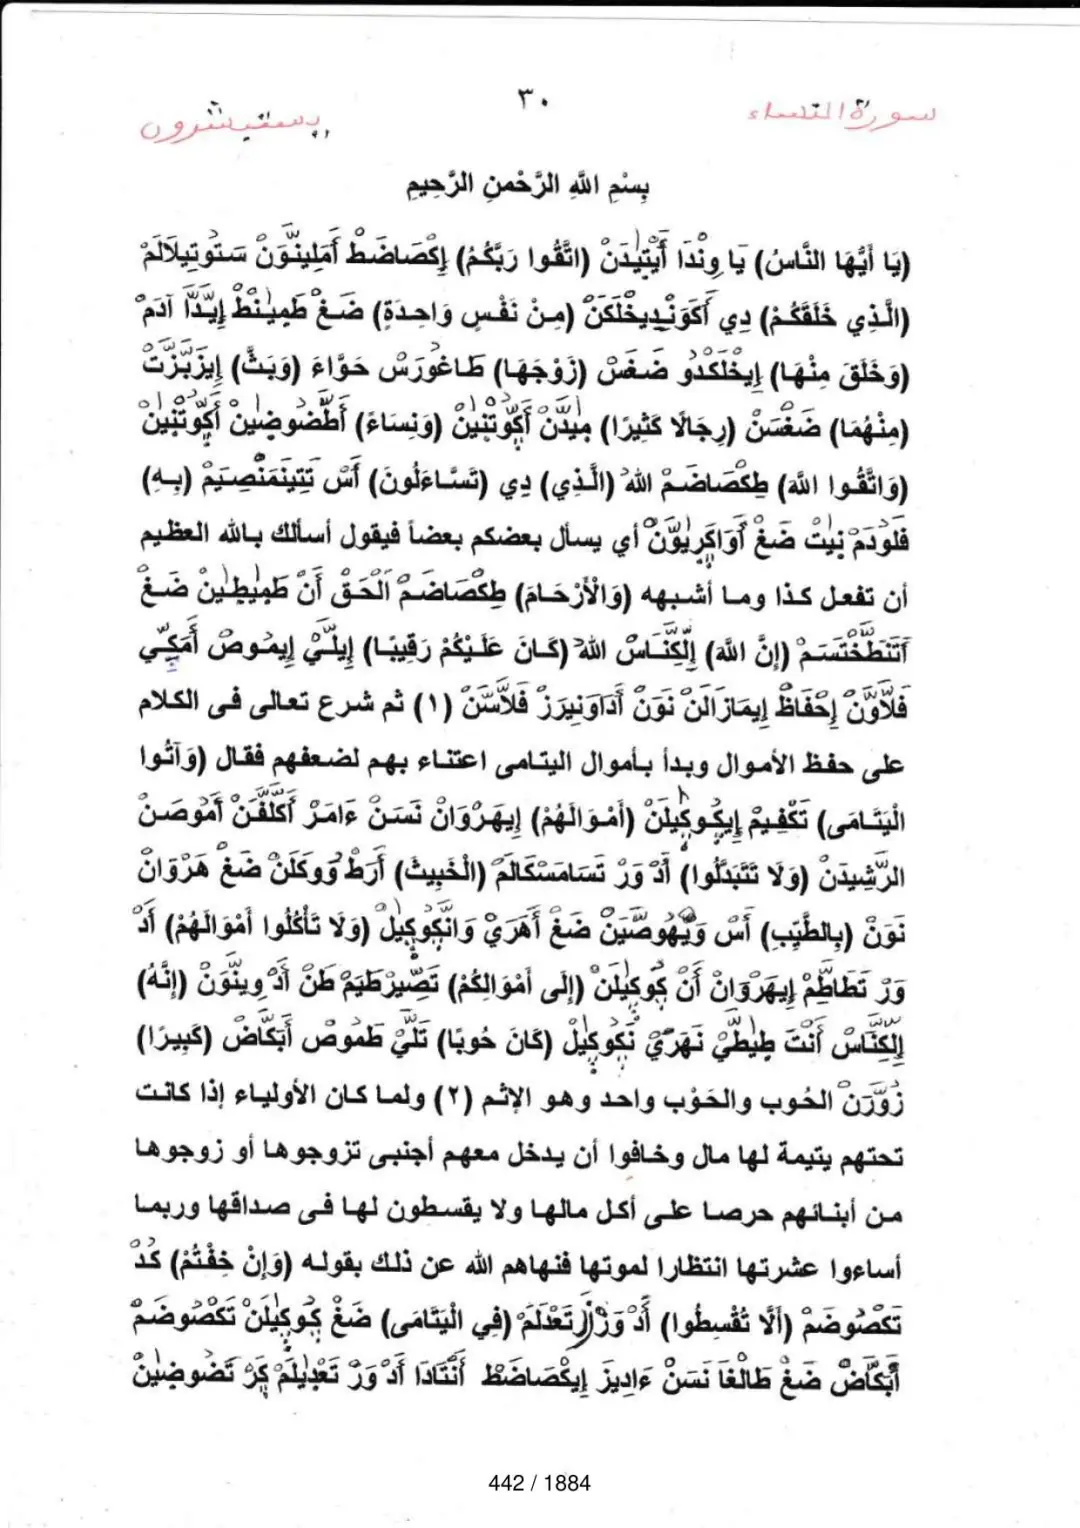 سورة النساء
٣٠
يستبشرون
بِسْمِ اللَّهِ الرَّحْمنِ الرَّحِيمِ
(يَا أَيُّهَا النَّاسُ) يَا وِنْدَا أَيْتِيدَنْ (اتَّقُوا رَبَّكُمُ) إِكْصَاضَطْ أَمَلِينَّوَنْ سَتُوتِيلَالَمْ
(الَّذِي خَلَقَكُمْ) دِي أَكَوَنْدِيخْلَكَنْ (مِنْ نَفْسٍ وَاحِدَةٍ) ضَغْ طَمِينْطْ إِيَّدَا آدَمْ
(وَخَلَقَ مِنْهَا) إِيخْلَكْدُو ضَغَسْ (زَوْجَهَا) طَاغُورَسْ حَوَّاءَ (وَبَثَّ) إِيزَبْزَتْ
(مِنْهُمَا) ضَغْسَنْ (رِجَالًا كَثِيرًا) مِيدَّنْ أَكُّوتْنِينْ (وَنِسَاءً) أَطَّضُوضِينْ أَكُّوتْنِينْ
(وَاتَّقُوا اللَّهَ) طِكْصَاضَمْ اللهْ (الَّذِي) دِي (تَسَّاءَلُونَ) أَسْ تَتِينَمَنْصِيَمْ (بِهِ)
فَلَودَمْ نِيتْ ضَغْ أَوَاكَرِيوَّنْ أي يسأل بعضكم بعضاً فيقول أسألك بالله العظيم
أن تفعل كذا وما أشبهه (وَالْأَرْحَامَ) طِكْصَاضَمْ اَلْحَقْ أَنْ طَمِيطِينْ ضَغْ
أَتَنَطَّخْتَسَمْ (إِنَّ اللَّهَ) إِلِّكَنَاسْ اللهْ (كَانَ عَلَيْكُمْ رَقِيبًا) إِيلَّيْ إِيمُوصْ أَمَكِّي
فَلَّاوَّنْ إِحْفَاظْ إِيمَازَالَنْ نَوَنْ أَدَاوَنِيرَزْ فَلَّاسَّنْ (١) ثم شرع تعالى فى الكلام
على حفظ الأموال وبدأ بأموال اليتامى اعتناء بهم لضعفهم فقال (وَآتُوا
الْيَتَامَى) تَكْفِيمْ إِيكُوكِيلَنْ (أَمْوَالَهُمْ) إِيهَرْوَانْ نَسَنْ ءَامَرْ أَكَلَّفَنْ أَمُوصَنْ
الرَّشِيدَنْ (وَلَا تَتَبَدَّلُوا) أَدْ وَرْ تَسَامَسْكَالَمْ (الْخَبِيثَ) أَرَطْ وُوكَلَنْ ضَغْ هَرْوَانْ
نَوَنْ (بِالطَّيِّبِ) أَسْ وَيَّهُوصَّيَنْ ضَغْ أَهَرَيْ وَانْكُوكِيلْ (وَلَا تَأْكُلُوا أَمْوَالَهُمْ) أَدْ
وَرْ تَطَاطَّمْ إِيهَرْوَانْ أَنْ كُوكِيلَنْ (إِلَى أَمْوَالِكُمْ) تَصِّيرْطَيَمْ طَنْ أَدْ وِينَّوَنْ (إِنَّهُ)
إِلِّكَنَّاسْ أَنْتَ طِيطَّيْ نَهَرَيْ نَكُوكِيلْ (كَانَ حُوبًا) تَلَّيْ طَمُوصْ أَبَكَّاضْ (كَبِيرًا)
زَوَّرَنْ الحُوب والحَوْب واحد وهو الإثم (٢) ولما كان الأولياء إذا كانت
تحتهم يتيمة لها مال وخافوا أن يدخل معهم أجنبى تزوجوها أو زوجوها
من أبنائهم حرصا على أكل مالها ولا يقسطون لها فى صداقها وربما
أساءوا عشرتها انتظارا لموتها فنهاهم الله عن ذلك بقوله (وَإِنْ خِفْتُمْ) كُدْ
تَكْصُوضَمْ (أَلَّا تُقْسِطُوا) أَدْ وَرْ تَعْدَلَمْ (فِي الْيَتَامَى) ضَغْ كُوكِيلَنْ تَكْصُوضَمْ
أَبَكَّاضْ ضَغْ طَالْغَا نَسَنْ ءَادِيزْ إِيكْصَاضَطْ أَنْتَادَا أَدْ وَرْ تَعْدِيلَمْ كَرْ تَضُوضِينْ
442 / 1884